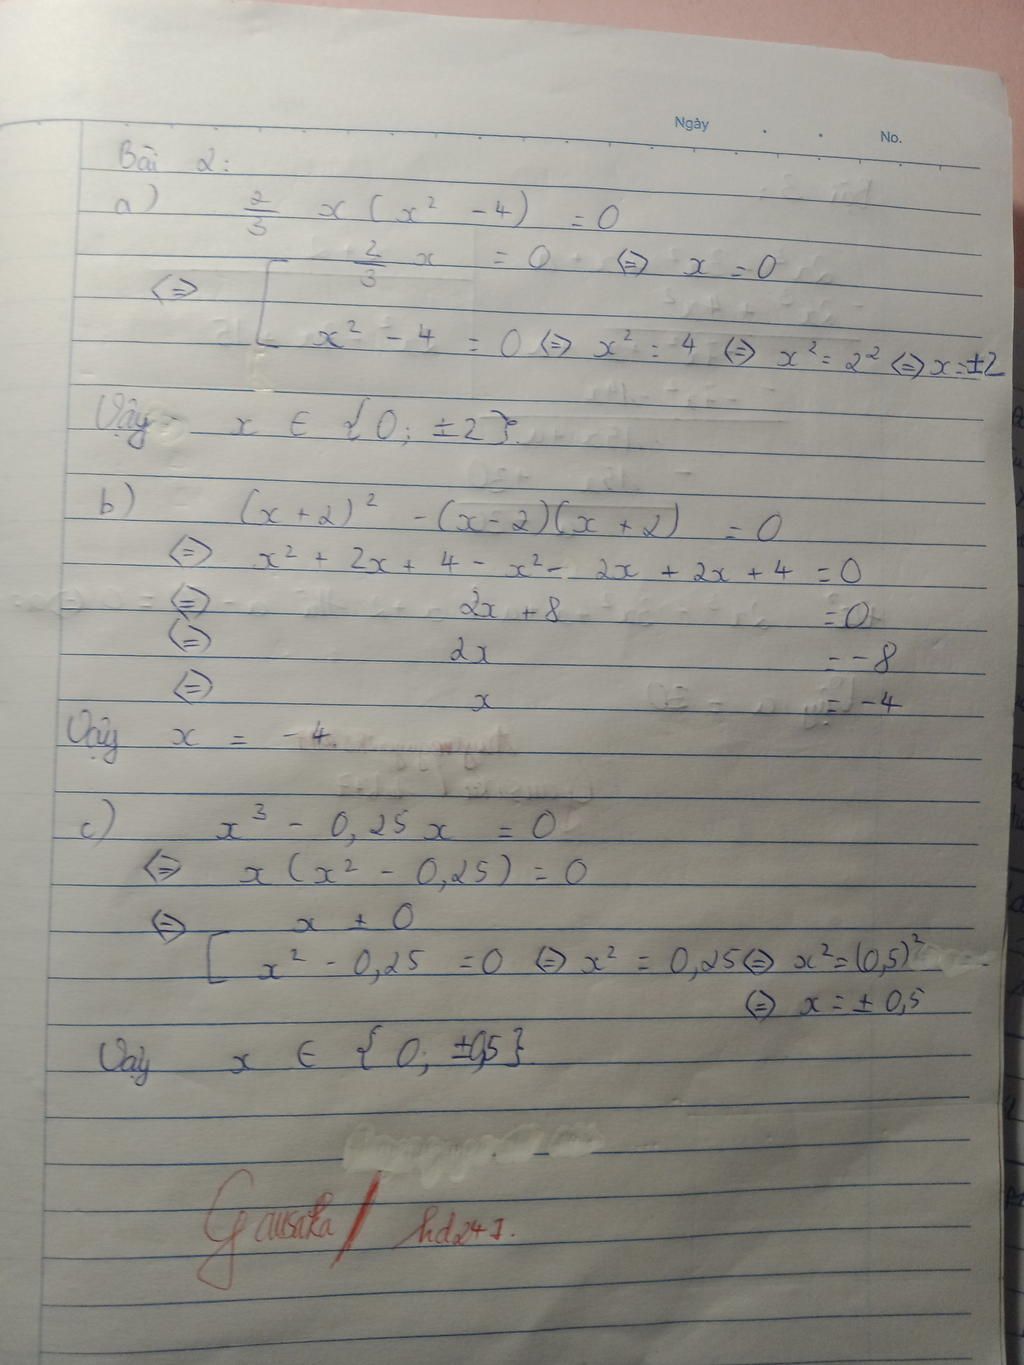 Ngày
No.
Bài 2:
a) 2/3 x (x² - 4) = 0
<=> [ 2/3 x = 0 <=> x = 0
x² - 4 = 0 <=> x² = 4 <=> x² = 2² <=> x = ±2
Vậy x ∈ {0; ±2}.
b) (x + 2)² - (x - 2)(x + 2) = 0
<=> x² + 2x + 4 - x² - 2x + 2x + 4 = 0
<=> 2x + 8 = 0
<=> 2x = -8
<=> x = -4
Vậy x = -4.
c) x³ - 0,25 x = 0
<=> x (x² - 0,25) = 0
<=> [ x = 0
x² - 0,25 = 0 <=> x² = 0,25 <=> x² = (0,5)²
<=> x = ± 0,5
Vậy x ∈ {0; ±0,5}.